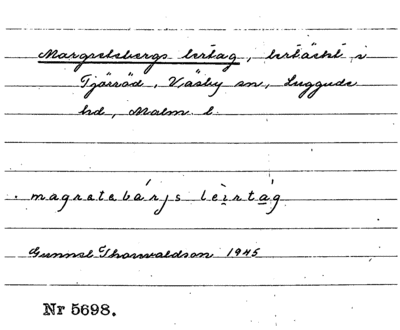 Margretebergs lertag, lertäckt i
Tjörröd, Väsby sn, Luggude
hd, Malm. l.
magratabárjs lèirtág
Gunnel Thorwaldson 1945
Nr 5698.